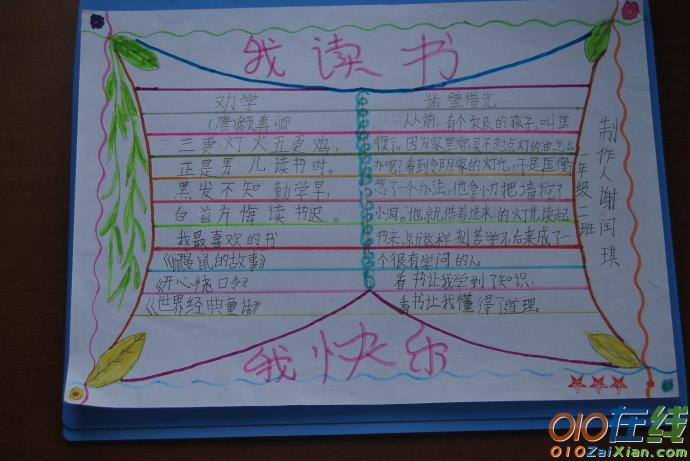 我读书
劝学
(唐)颜真卿
三更灯火五更鸡，
正是男儿读书时。
黑发不知勤学早，
白首方悔读书迟。
我最喜欢的书
《鼹鼠的故事》
《开心绕口令》
《世界经典童话》
凿壁借光
从前，有个农民的孩子，叫匡
衡。因为家里穷，买不起点灯的油怎么
办呢？看到邻居家的灯光，于是匡衡
想了一个办法，他拿小刀把墙挖了
小洞。他就借着进来的灯光读起
书来，就这样刻苦学习，后来成了一
个很有学问的人。
看书让我学到了知识，
看书让我懂得了道理。
年级二班
制作人谢闰琪
我快乐
010在线
010ZaiXian.com